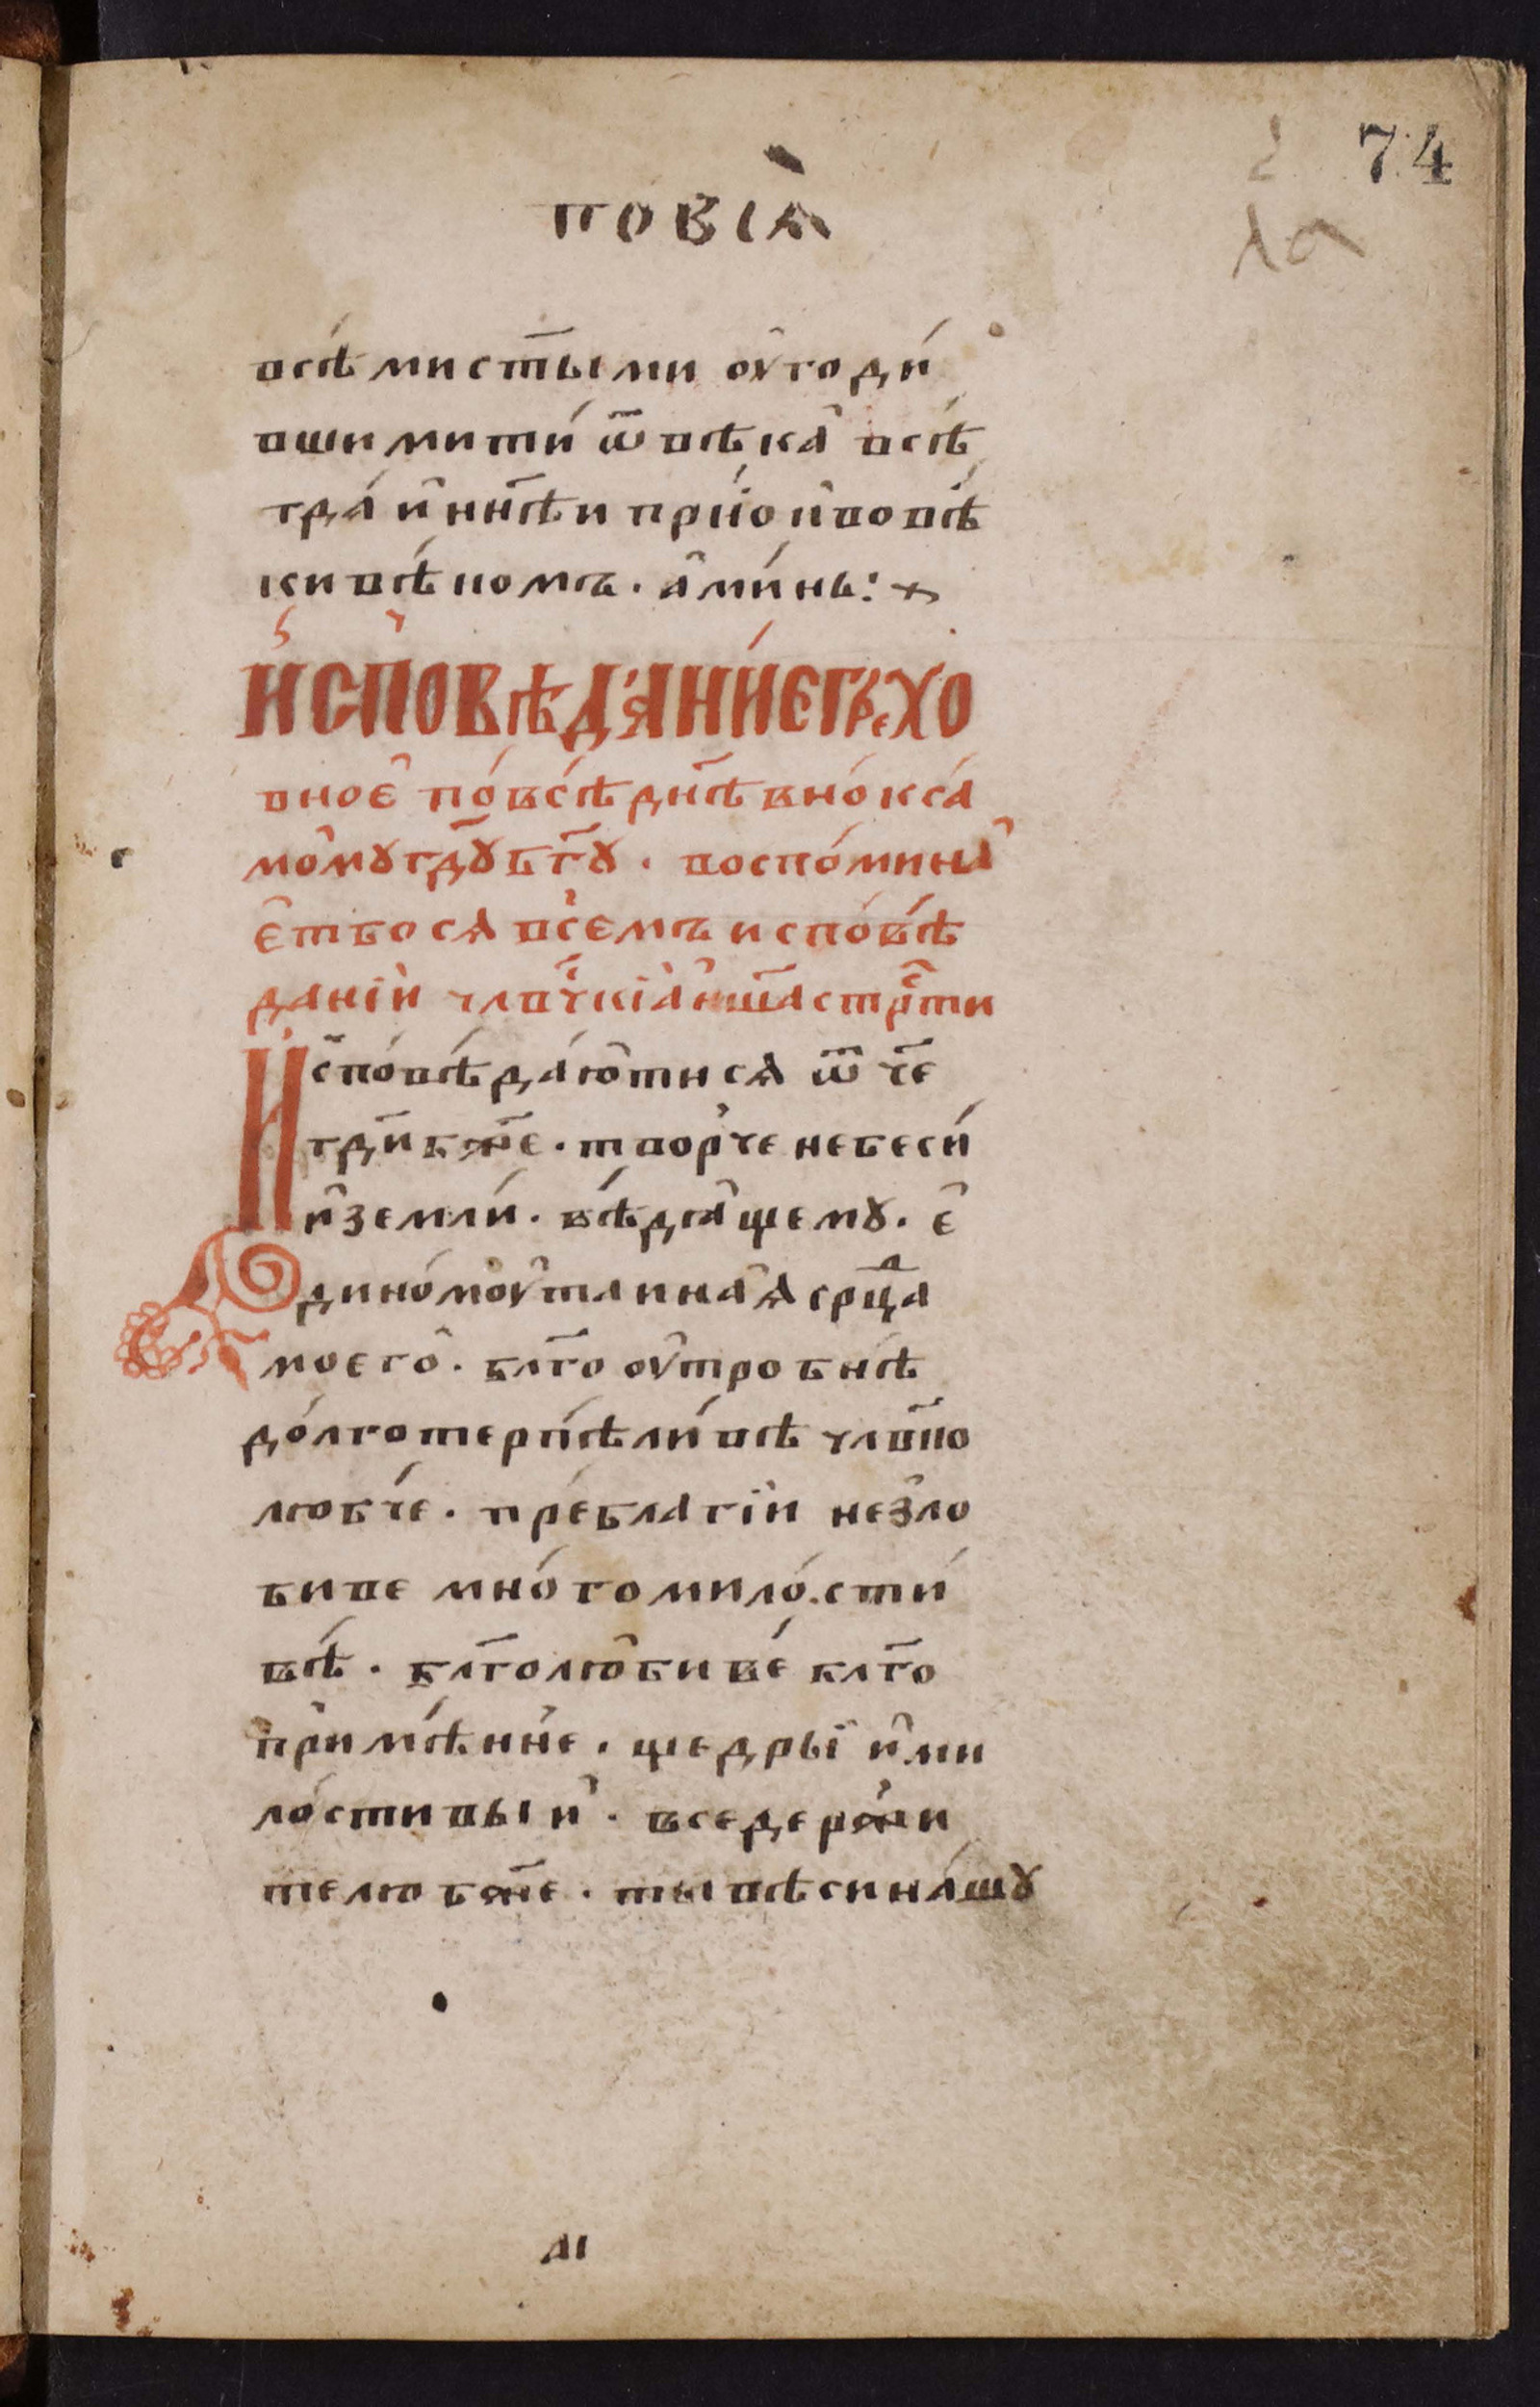 74
ла
повїѧ
всѣ́ми ст҃ы́ми оу҆годи́
вшими ти́ ѿ вѣка̑ всѣ́
гда́ и҆ нн҃ѣ и при́о и҆ во вѣ́
ки вѣ́комъ. а҆ми́нь:
И҆СПОВѢДА́НИ́Е ГРЕХО
вное̑ по́ всѣ́ дн҃ѣ вно́к са́
мо̑му гд҃у бг҃у. воспо́мина̑
е̑т бо сѧ в се́мъ испо́вѣ́
данїи члв҃чкїѧ̑ нш҃а стр҃ти
Испо́вѣ́да́ю̑тисѧ ѿч҃е
гд҃и бж҃е. творче небеси́
и҆ земли́. вѣ́дꙗ̑щему. е̑
дино́му оу҆таинаѧ̑ срц҃а
моего̑. бл҃гооу҆тробнѣ́
до́лготерпѣ́ли́вѣ члв҃ко
любче́. пребла́гїи незло
биве мно́гомило́.сти́
вѣ́. бл҃голю̑биве́ бл҃го
при̑мѣ́нне. щедрӹ и҆ ми
ло́стивыи̑. вседержи
телю бж҃е. ты вѣси на́шу
аі